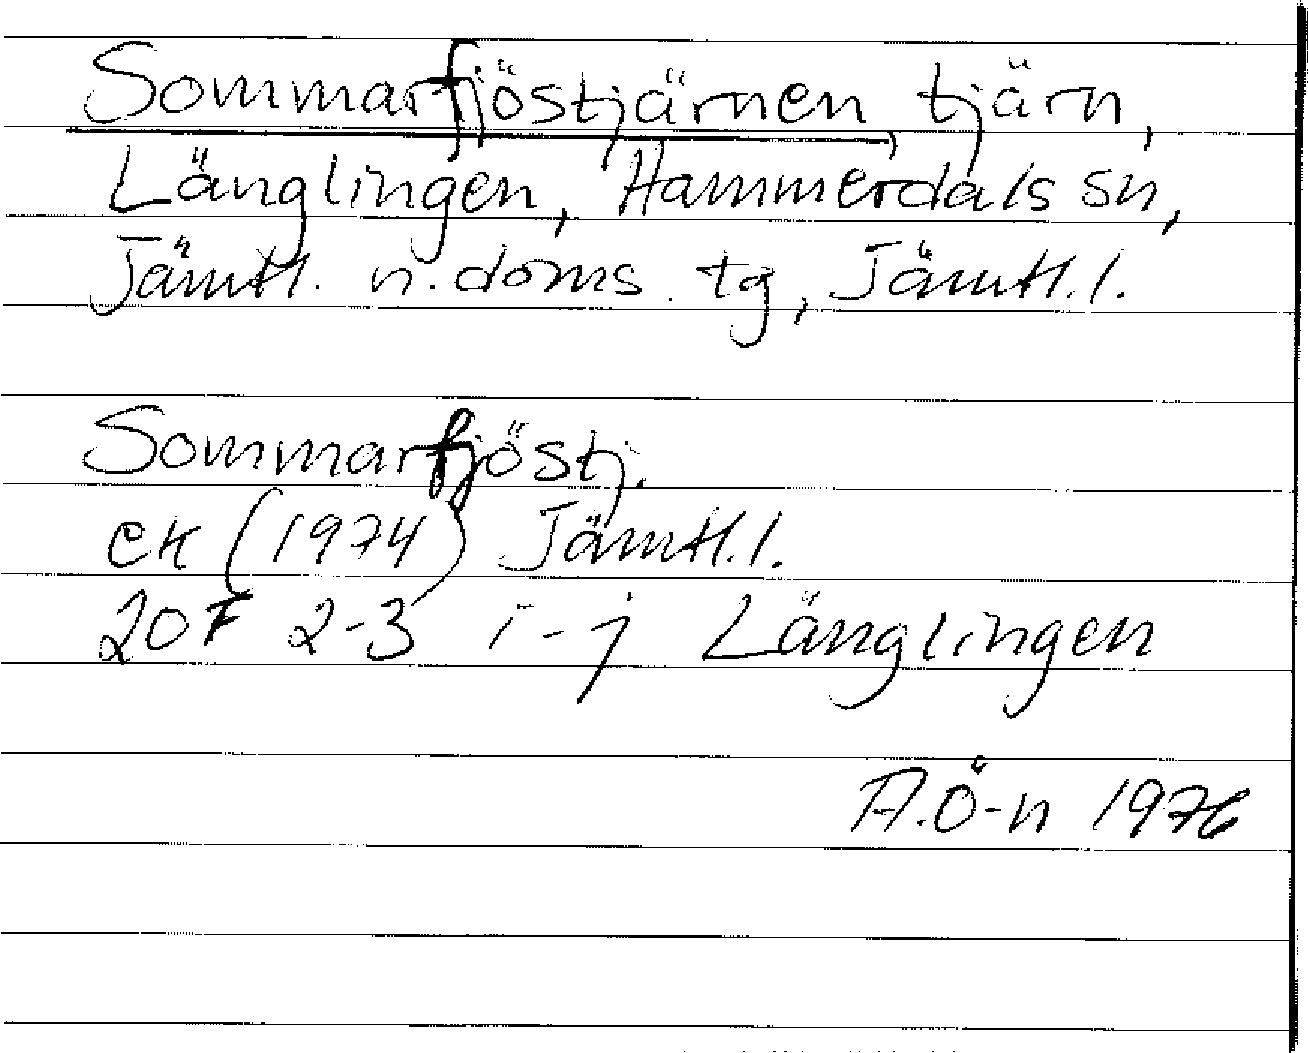 Sommarfjöstjärnen tjärn,
Länglingen, Hammerdals sn,
Jämtl. n. doms. tg, Jämtl. l.
Sommarfjöstj.
ek (1974) Jämtl. l.
20F 2-3 i-j Länglingen
A.Ö-n 1976